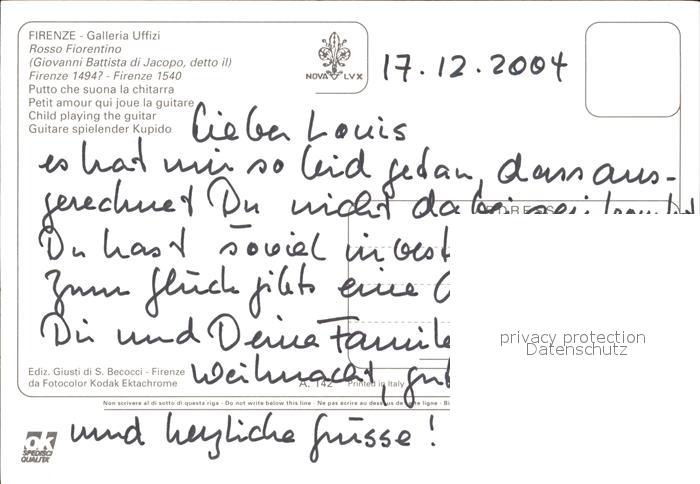 FIRENZE - Galleria Uffizi
Rosso Fiorentino
(Giovanni Battista di Jacopo, detto il)
Firenze 1494? - Firenze 1540
Putto che suona la chitarra
Petit amour qui joue la guitare
Child playing the guitar
Guitare spielender Kupido
NOVA LVX
17.12.2004
Lieber Louis
es hat mir so leid getan, dass aus-
gerechnet Du nicht dabei sein konnt
Du hast soviel invest
Zum Glück gibts eine
Dir und Deine Familie
Weihnacht, gut
und herzliche Grüsse!
privacy protection
Datenschutz
Ediz. Giusti di S. Becocci - Firenze
da Fotocolor Kodak Ektachrome
A. 142
Printed in Italy
Non scrivere al di sotto di questa riga - Do not write below this line - Ne pas écrire au dessous de cette ligne - Bi
ok
SPEDISCI
QUALITÀ